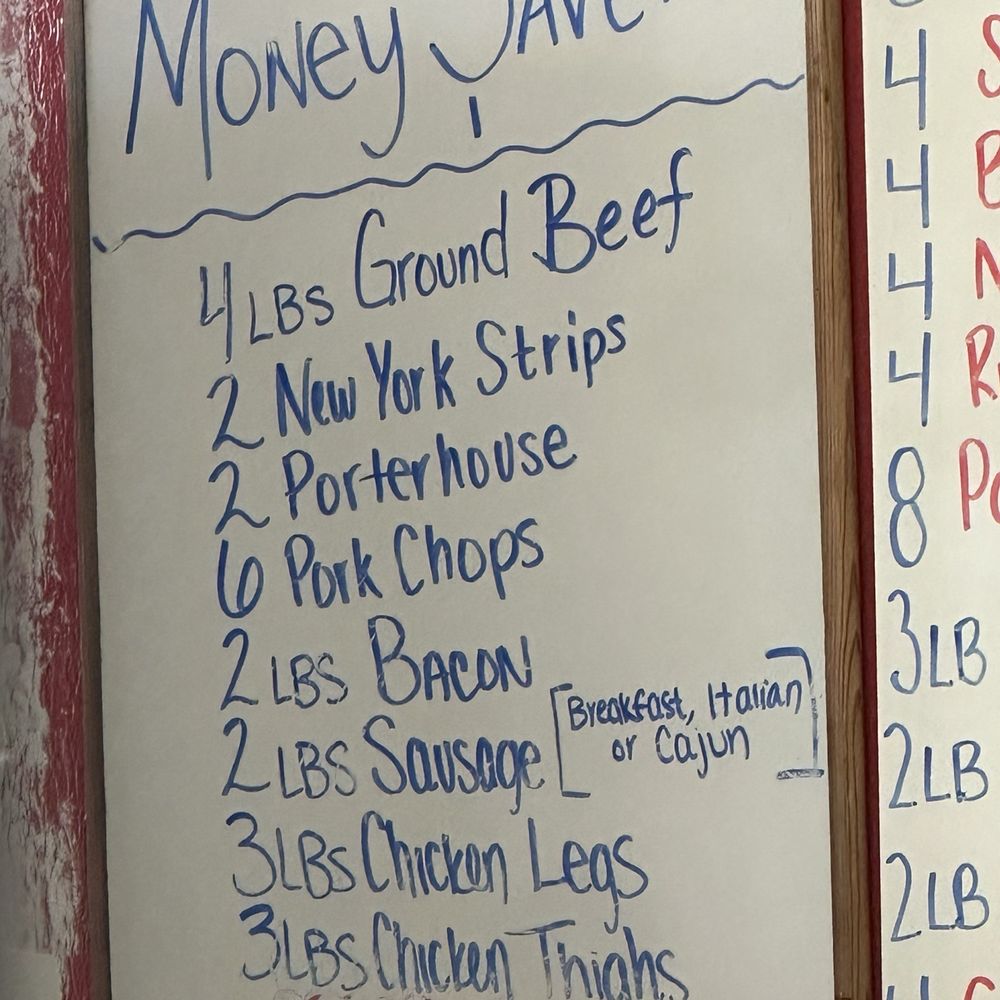 Money
4 LBS Ground Beef
2 New York Strips
2 Porterhouse
6 Pork Chops
2 LBS BACON
2 LBS Sausage [Breakfast, Italian
or Cajun]
3 LBS Chicken Legs
3 LBS Chicken Thighs
4
4
4
4
8
3 LB
2 LB
2 LB